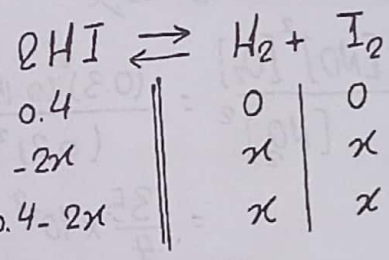 2HI ⇌ H₂ + I₂
0.4 0 0
-2x x x
0.4-2x x x